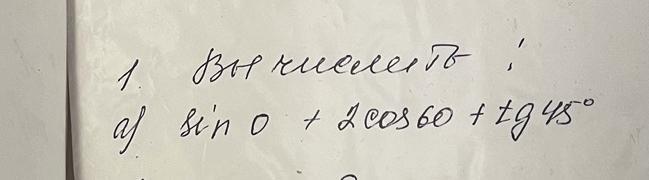 1. Вычислить:
а) sin 0 + 2cos60 + tg45°